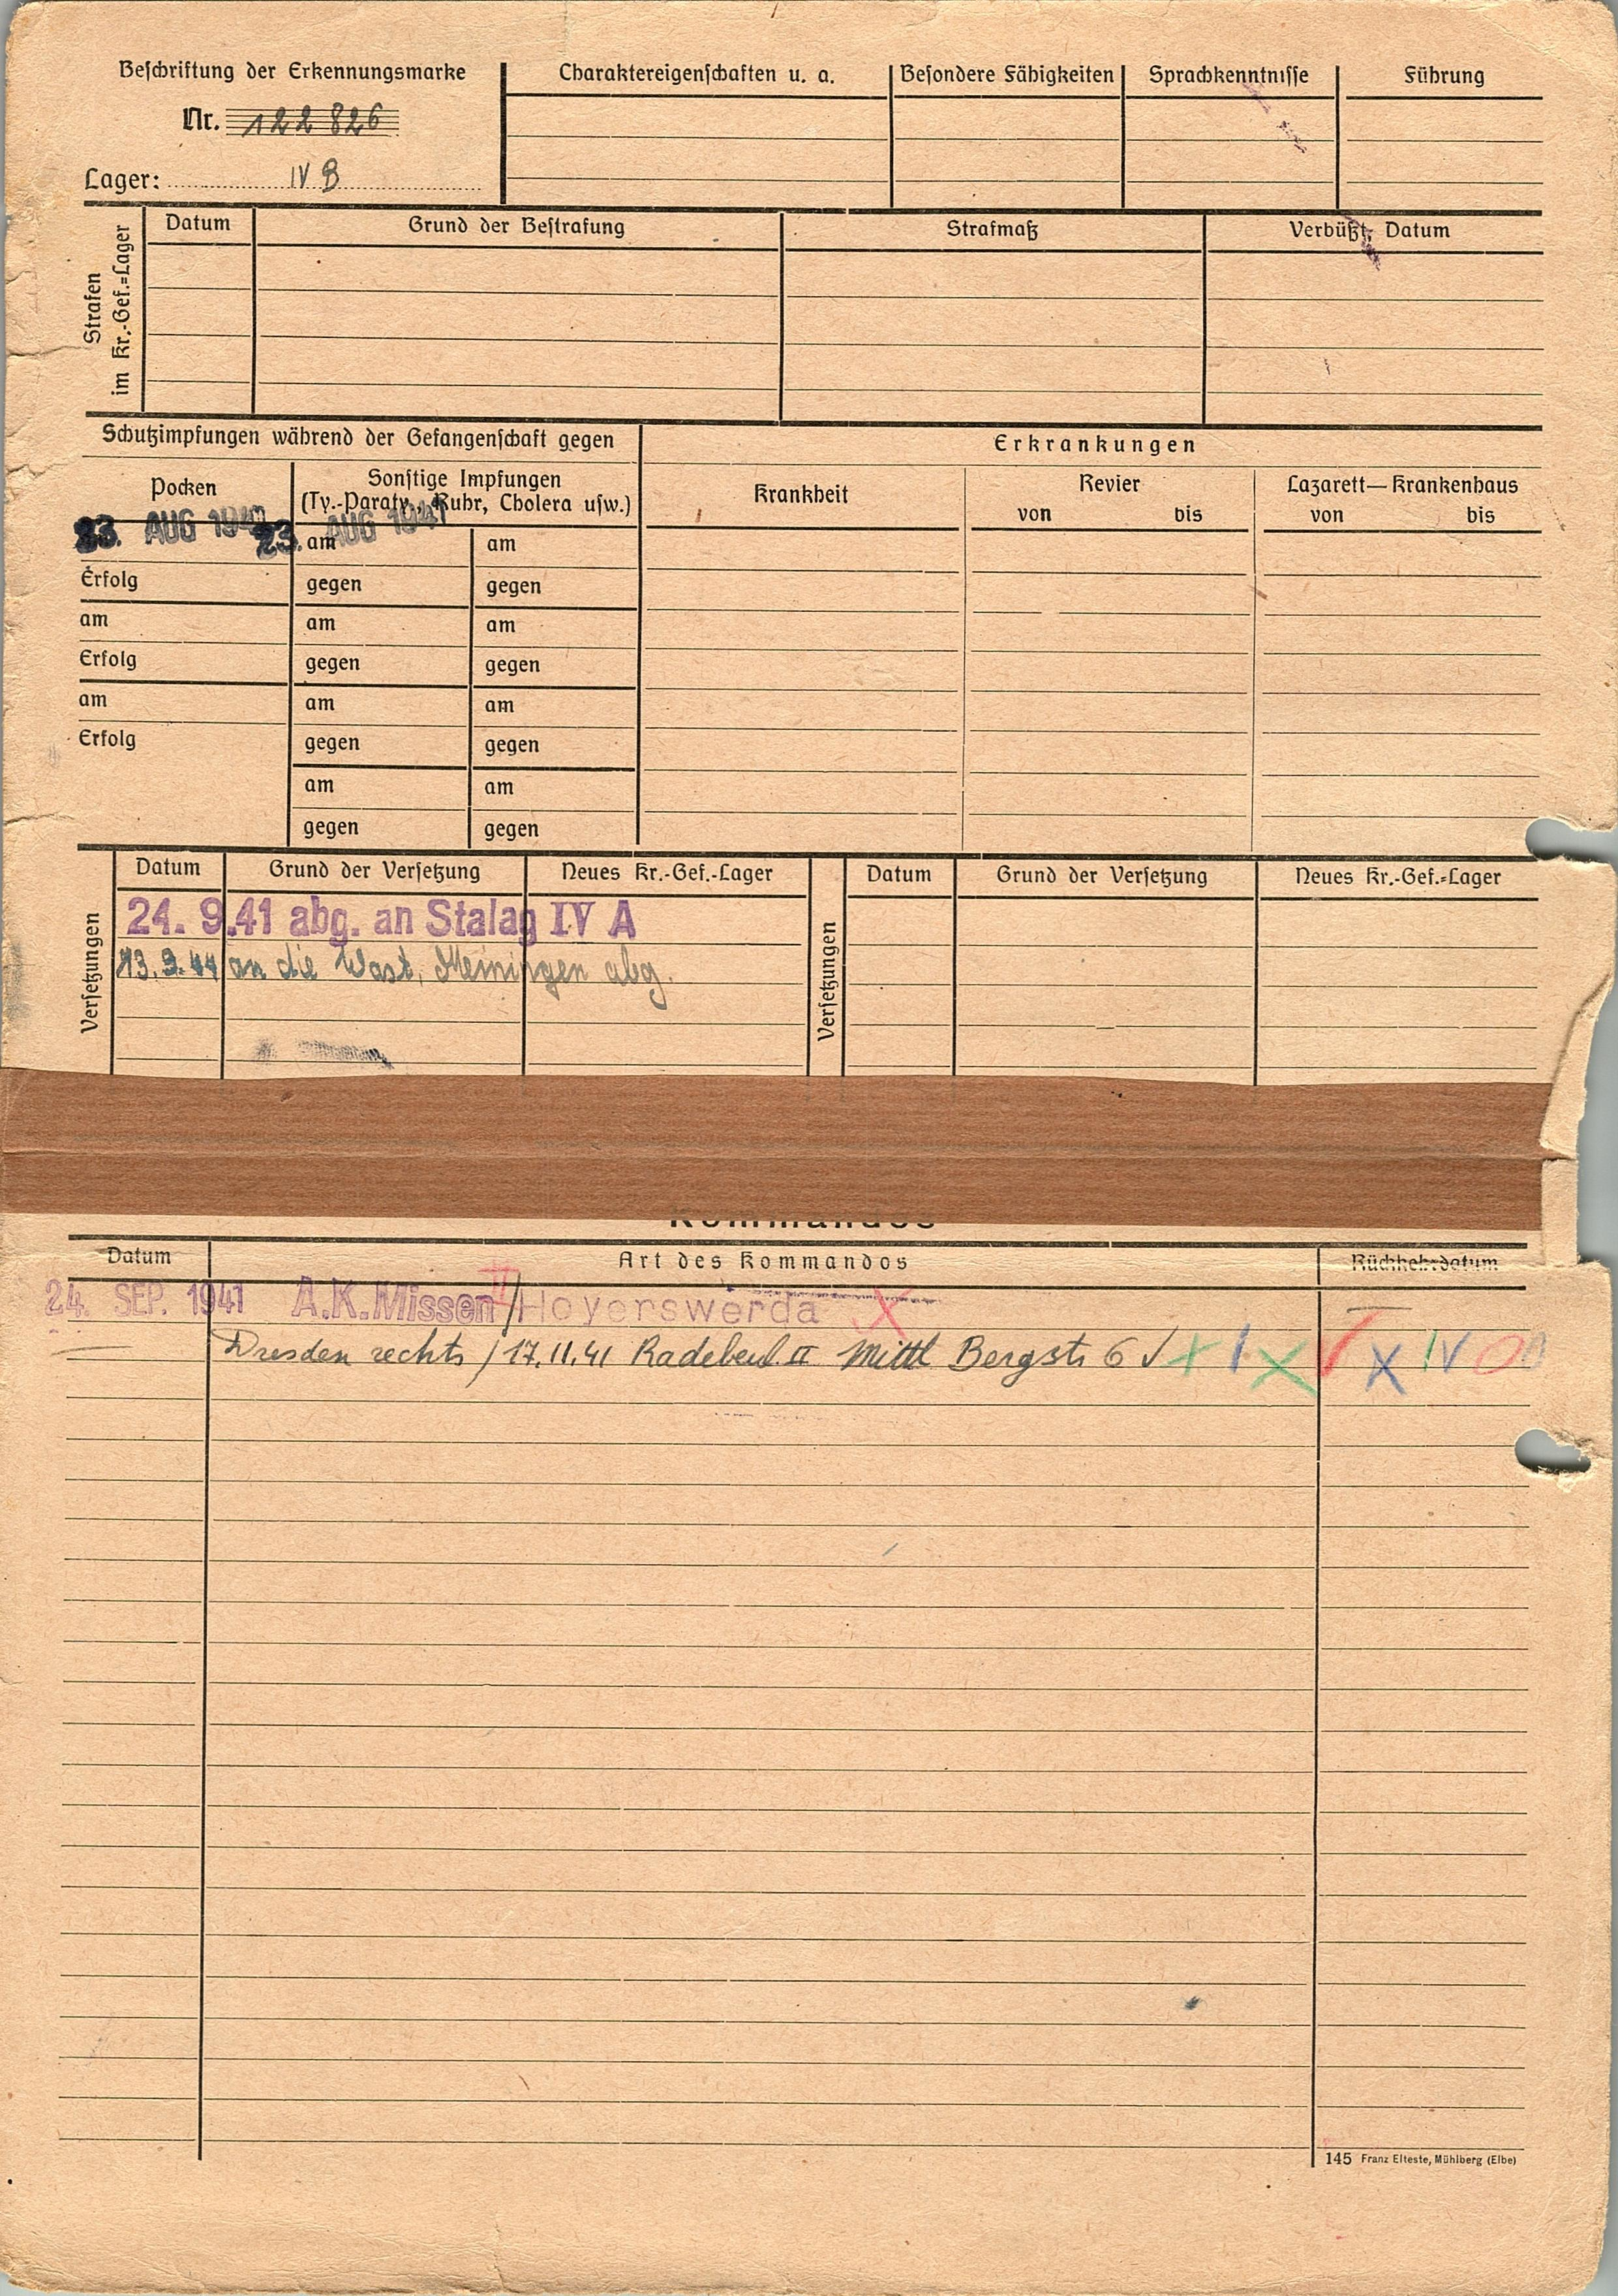 Beschriftung der Erkennungsmarke
Nr. 122 826
Lager: IV B
Charaktereigenschaften u. a.
Besondere Fähigkeiten
Sprachkenntnisse
Führung
Strafen
im Kr.-Gef.=Lager
Datum
Grund der Bestrafung
Strafmaß
Verbüßt, Datum
Schutzimpfungen während der Gefangenschaft gegen
Erkrankungen
Pocken
Sonstige Impfungen
(Ty.-Paraty., Ruhr, Cholera usw.)
Krankheit
Revier
von bis
Lazarett—Krankenhaus
von bis
23. AUG 1941 23. AUG 1941
am am
Erfolg gegen gegen
am am am
Erfolg gegen gegen
am am am
Erfolg gegen gegen
am am
gegen gegen
Versetzungen
Datum Grund der Versetzung Neues Kr.-Gef.-Lager
24. 9.41 abg. an Stalag IV A
13.9.44 an die Wast, Meiningen abg.
Versetzungen
Datum Grund der Versetzung Neues Kr.-Gef.=Lager
Kommandos
Datum Art des Kommandos Rückkehrdatum
24. SEP. 1941 A.K.Missen II/Hoyerswerda X
Dresden rechts / 17.11.41 Radebeul II Mittl Bergstr 6
145 Franz Elteste, Mühlberg (Elbe)